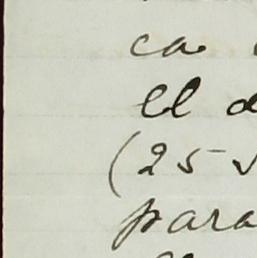 ca
el d
(25
para